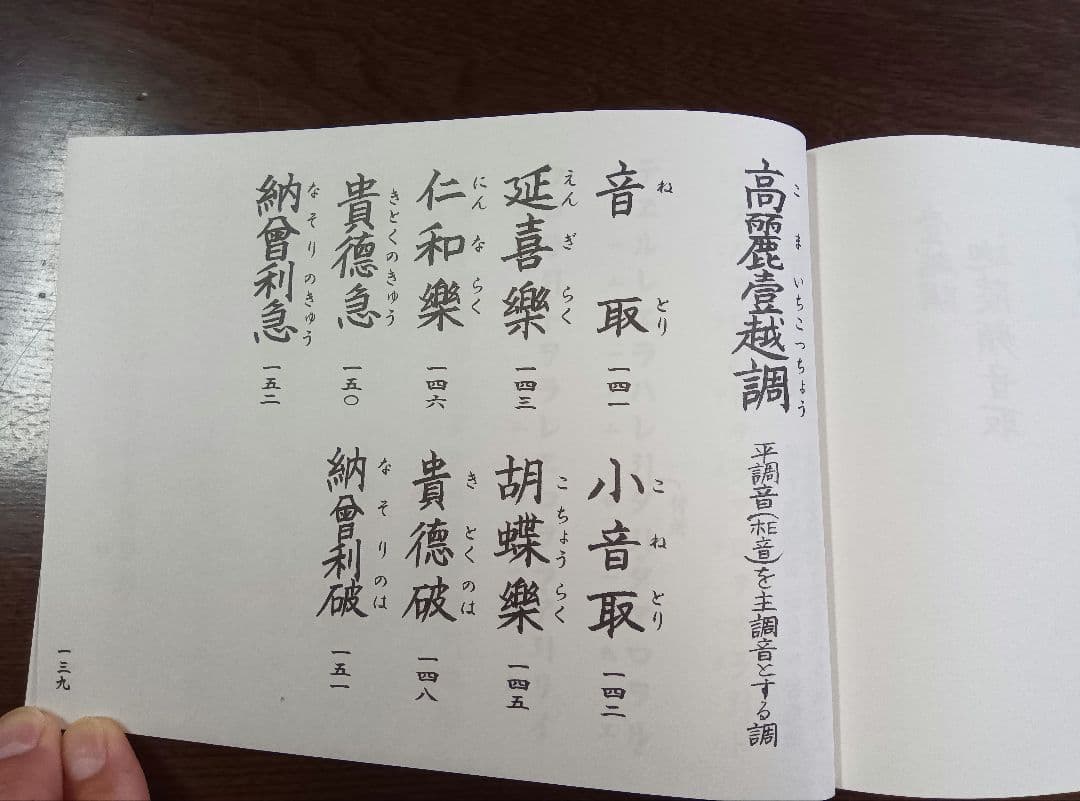 高麗壹越調
こまいちこっちょう
平調音(ホE音)を主調音とする調
音取
ねとり
一四一
小音取
こねとり
一四二
延喜樂
えんぎらく
一四三
胡蝶樂
こちょうらく
一四五
仁和樂
にんならく
一四六
貴德破
きとくのは
一四八
貴德急
きとくのきゅう
一五〇
納曾利破
なそりのは
一五一
納曾利急
なそりのきゅう
一五二
一三九